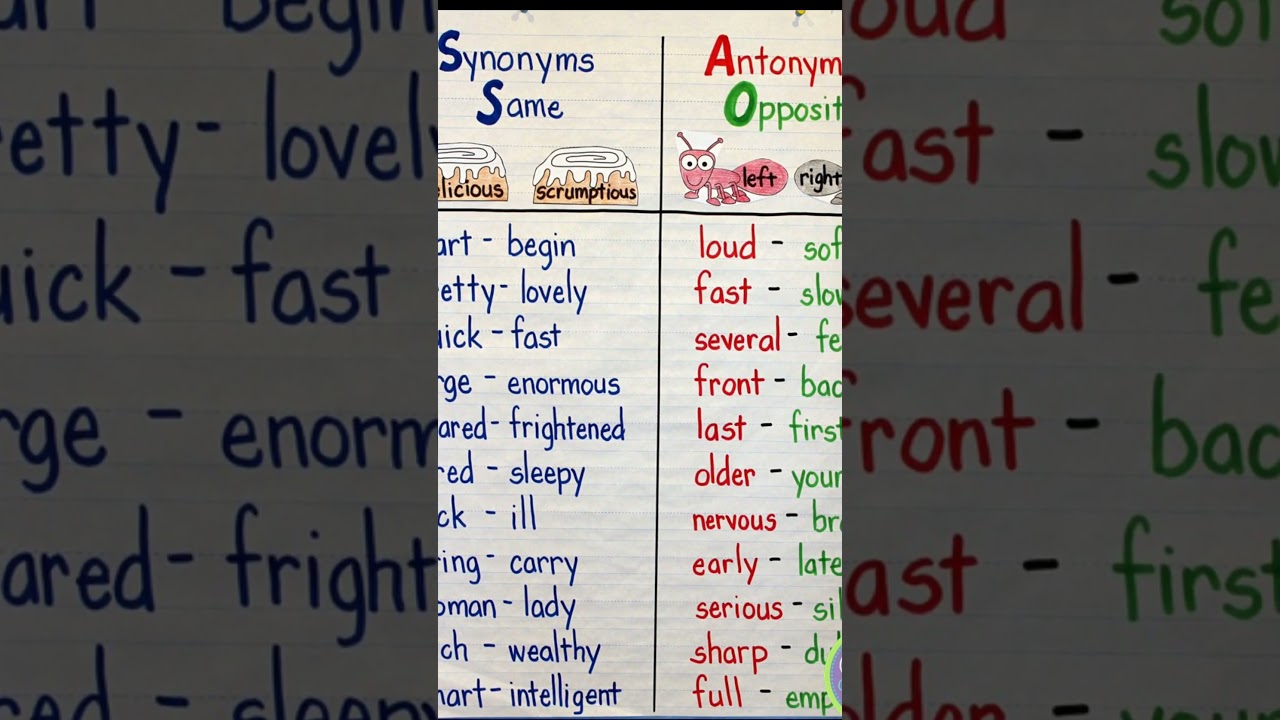 Synonyms
Same
licious scrumptious
art - begin
etty - lovely
ick - fast
rge - enormous
ared - frightened
red - sleepy
ck - ill
ing - carry
oman - lady
ch - wealthy
art - intelligent
Antonym
Opposit
left right
loud - sof
fast - slow
several - fe
front - bac
last - first
older - your
nervous - bra
early - late
serious - sil
sharp - du
full - emp